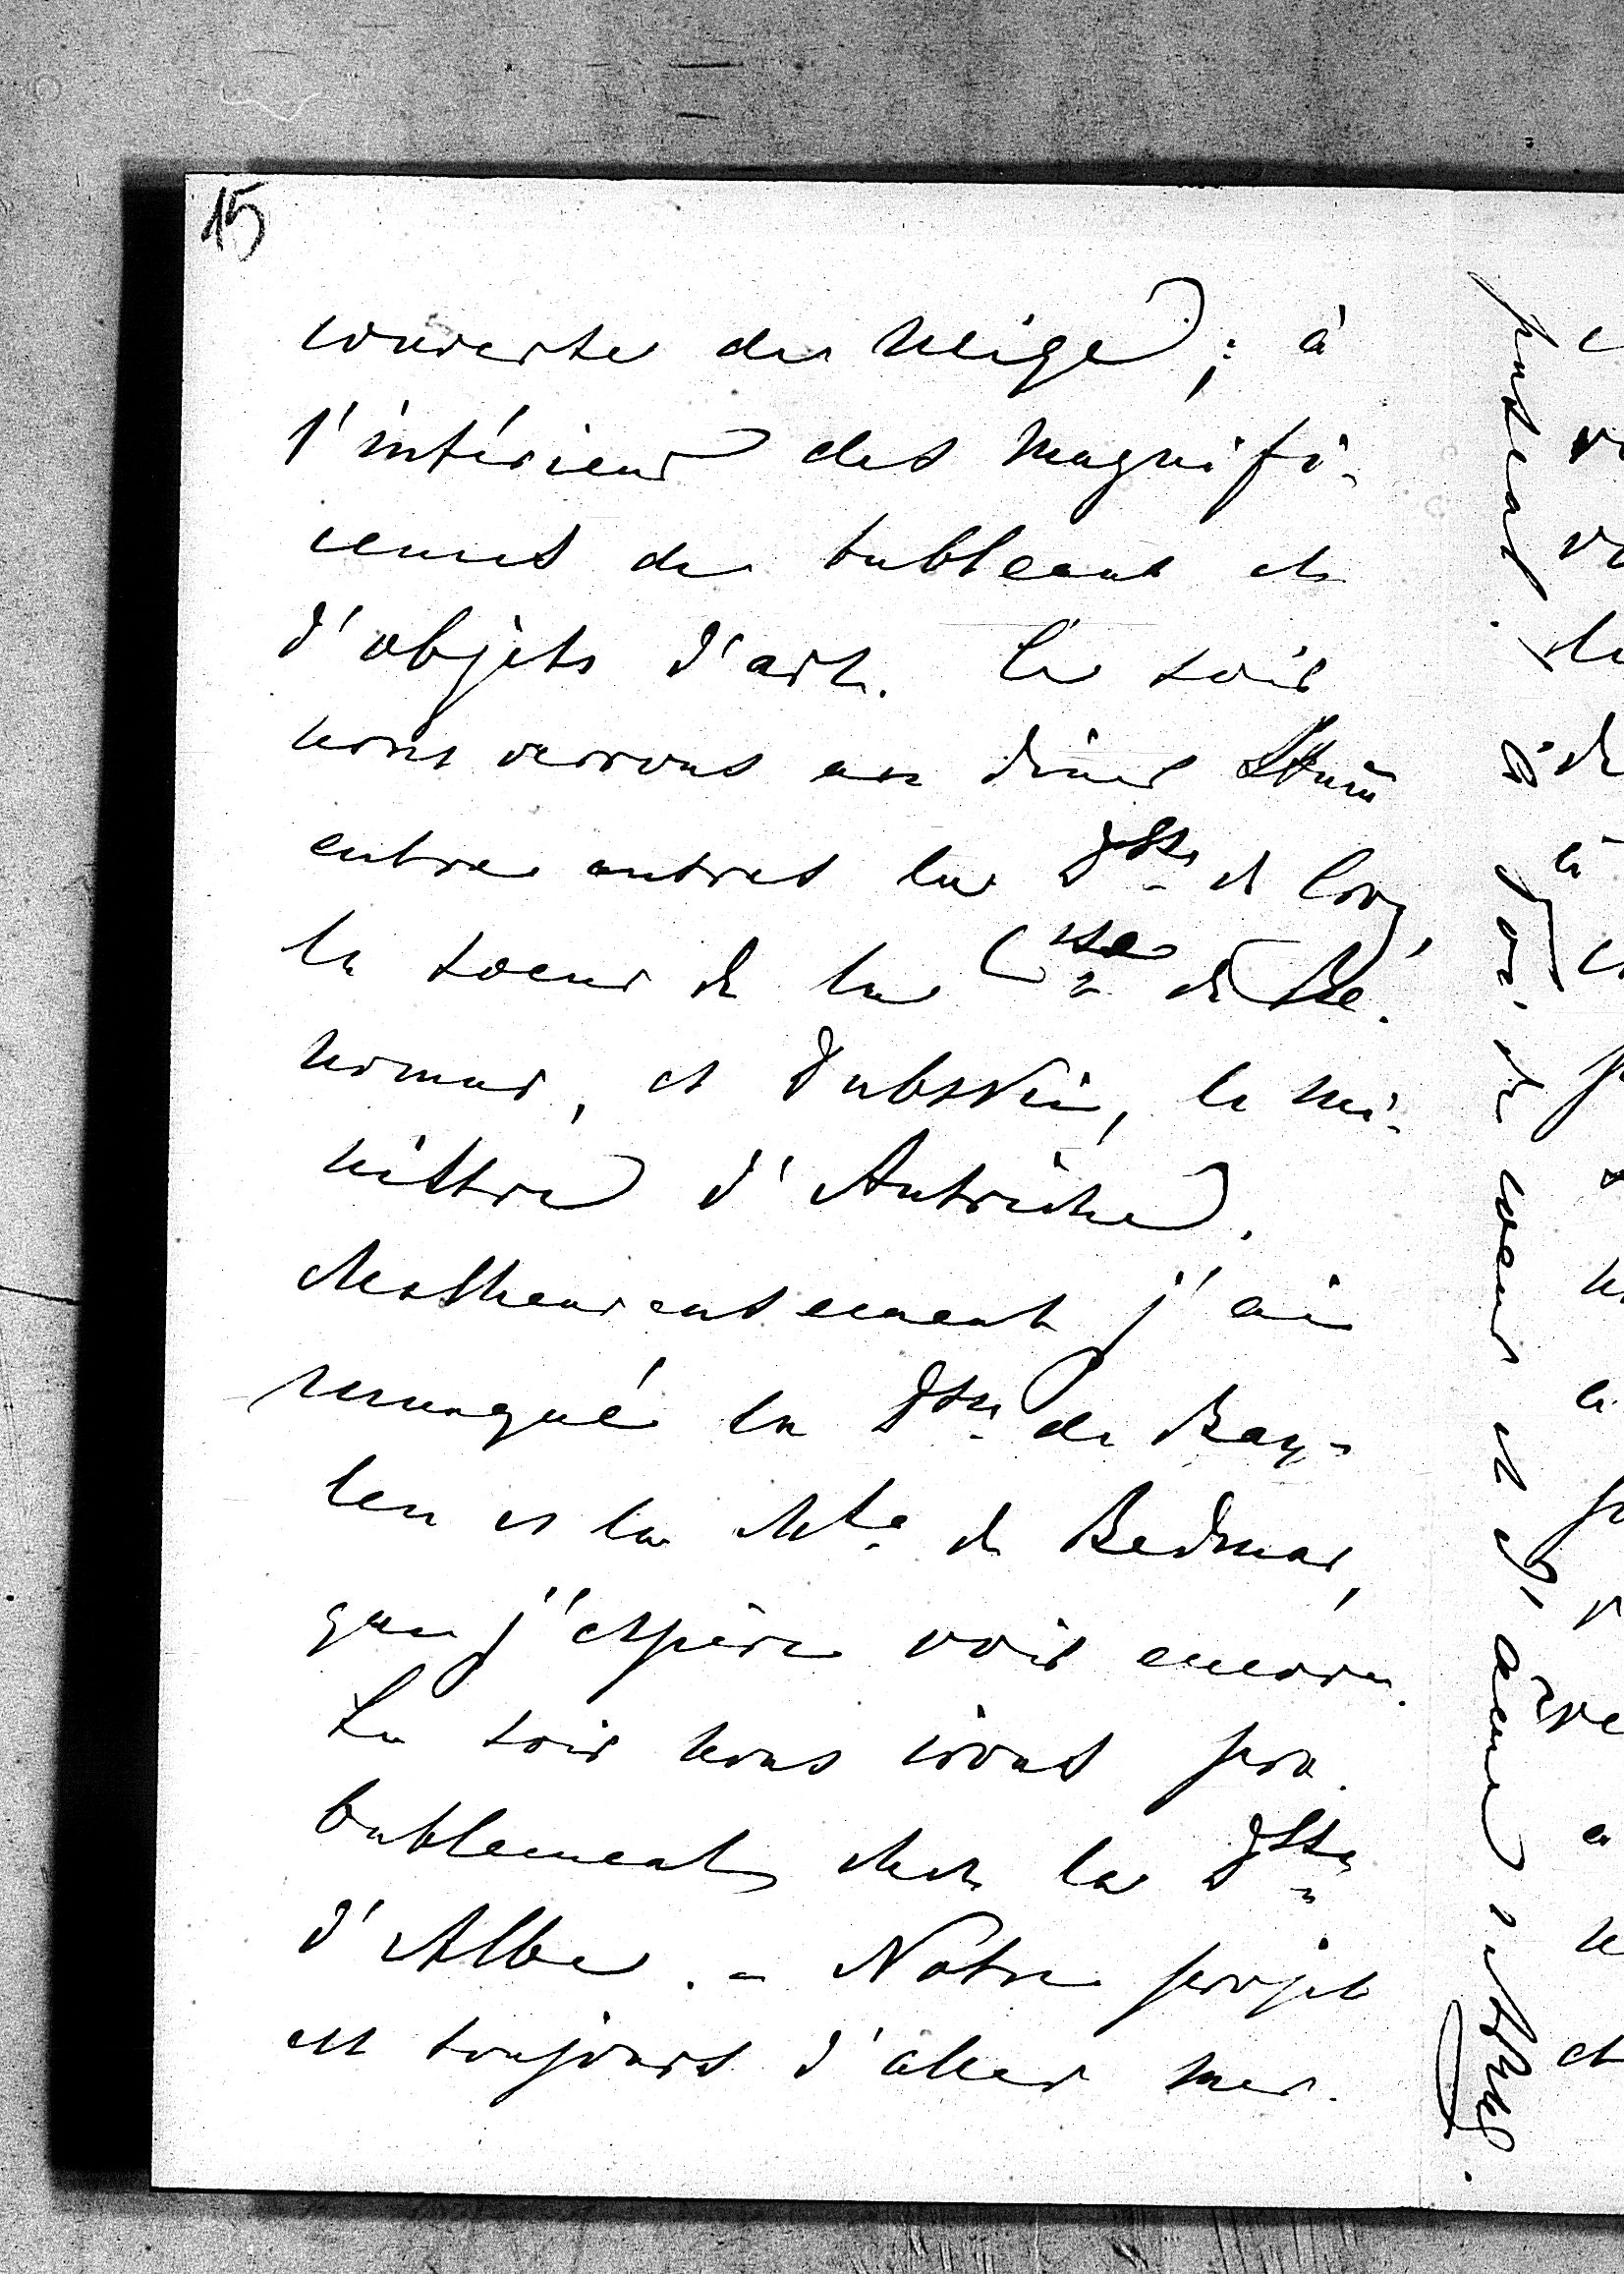 15
couverte de neige; à
l'intérieur des magnifi-
cences de tableaux et
d'objets d'art. Ce soir
nous verrons au diner Stumm
entre autres la Dsse de Conq
la soeur de la Csse de Be-
nomar, et Dubsky, le mi-
nistre d'Autriche.
Malheureusement j'ai
manqué la Dsse de Bay-
len et la Mse de Bedmar,
que j'espère voir encore.
Le soir nous irons pro-
bablement chez la Dsse
d'Albe. - Notre projet
est toujours d'aller mer-
de coeur et d'âme